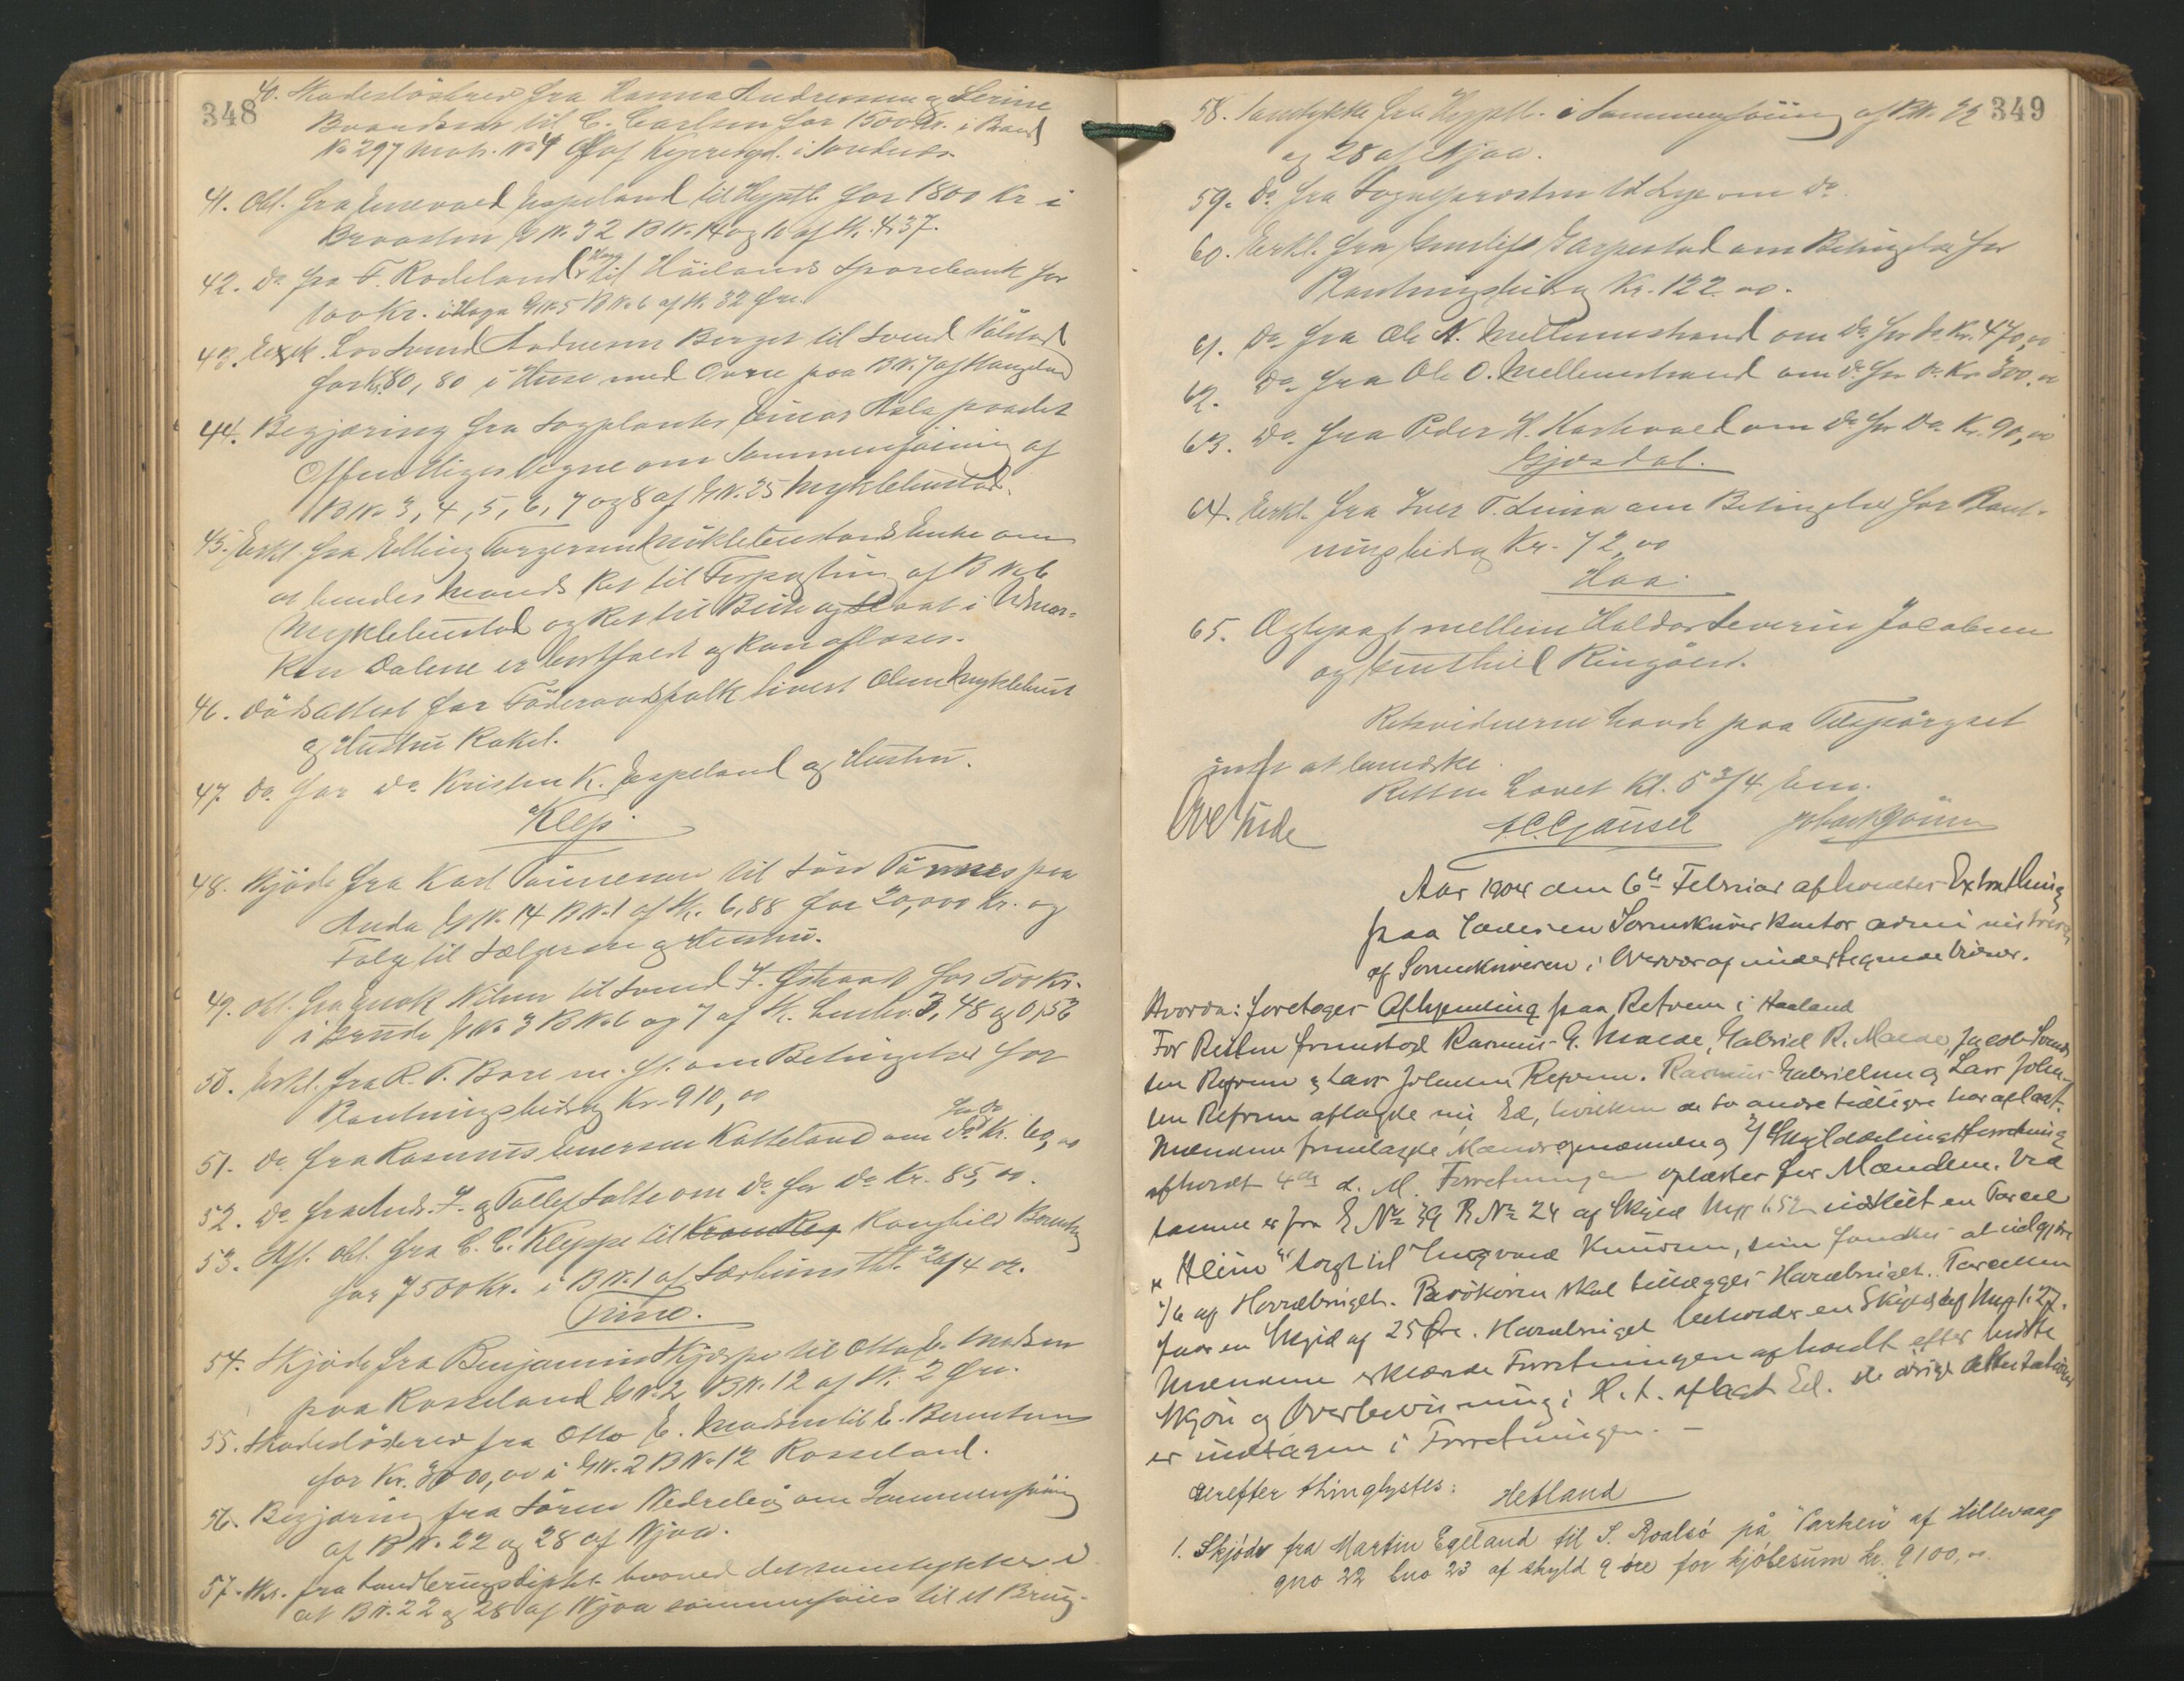 348
40. Skadesløsbrev fra Hanna Andreassen og Serine
til C. Carlsen for 1500 Kr. i Brand
No 297 Matr. No 4 af i Sandnes
41. Obl. fra Enevald Espeland til Hyptb. for 1800 Kr i
Braasten G No. 32 B No. 14 og af Sk. 4,37.
42. Do fra F. Rodeland til Høilands Sparebank for
100 Kr. i Haga G No 5 B No 6 af Sk. 32 Øre.
43. Exek. hos Svend Andersen Berget til Svend Vålstad
for Kr. 80,80 i Huse med Ovne paa B No. 7 af Haugeland
44. Begjæring fra Sogplanter Einar Hala paa det
Offentliges Vegne om Sammenføining af
B No 3, 4, 5, 6, 7 og 8 af G No. 25 Myklebustad.
45. Erkl. fra Elling Torgersen Myklebustads Enke om
at hendes Mands Ret til Forpagtning af B No 6
Myklebustad og Ret til Beite og Slaat i Udmar-
ken Dalene er bortfaldt og kan aflæses.
46. Dødsattest for Føderaadsfolk Sivert Olsen Myklebust
og Hustru Rakel.
47. Do for Do Kristen K. Espeland og Hustru.
Klep.
48. Skjøde fra Karl Tønnesen til Søn Tønnes paa
Anda G No. 14 B No. 1 af Sk. 6,88 for 20,000 Kr. og
Følge til Sælgeren og Hustru.
49. Obl. fra Enok Nilsen til Svend F. Østraat for 500 Kr.
i Braude G No 3 B No 6 og 7 af Sk. 3,48 og 0,53
50. Erkl. fra R. T. Bore m. fl. om Betingelse for
Rentningsbidrag Kr. 910,00
for Do
51. Do fra Rasmus Enersen Katteland om Do Kr. 60,00
52. Do fra And. F. og Tollef Salte om Do for Do Kr. 85,00.
53. Afl. obl. fra C. C. Kleppe til Ranghild Berentsen
for 7500 Kr. i B No. 1 af tht. 20/4 02.
Time.
54. Skjøde fra Benjamin Skjærpe til Otto E. Madsen
paa Rosseland G No. 2 B No. 12 af Sk. 2 Øre.
55. Skadesløsbrev fra Otto E. Madsen til E. Berentsen
for Kr. 3000,00 i G No. 2 B No 12 Rosseland.
56. Begjæring fra Søren Nedrebø om Sammenføining
af B No. 22 og 28 af Njaa.
57. Skr. fra Landbrugsdeptet hvorved det samtykkes i
at B No. 22 og 28 af Njaa sammenføies til et Brug.
349
58. Samtykke fra Hyptb. i Sammenføining af B No. 22
og 28 af Njaa.
59. Do fra Sogneprosten til Lye om Do.
60. Erkl. fra Gunleif Garpestad om Betingelse for
Rentningsbidrag Kr. 122.00.
61. Do fra Ole N. Mellemstrand om Do for Do Kr. 470,00
62. Do fra Ole O. Mellemstrand om Do for Do Kr. 300.00
63. Do fra Peder H. Hashvoel om Do for Do Kr. 90,00
Gjesdal.
64. Erkl. fra Iver T. Lima om Betingelse for Rent-
ningsbidrag Kr. 72,00
Haa.
65. Aftægt mellem Haldor Severin Jacobsen
og Gunhild Ringøen.
Retsvidnerne havde paa Tilspørgsel
intet at bemærke.
Retten hævet Kl. 5 3/4 Em.
A. C. Gausel
Aar 1904 den 6te Februar afholdtes Extrathing
paa Jæderen Sorenskriverkontor administreret
af Sorenskriveren i Overvær af undertegnede Vidner.
Hvorda: foretoges Afhjemling paa Refvem i Haaland
For Retten fremstod Rasmus G. Malde, Gabriel R. Malde, Jacob Svend-
sen Refvem og Lars Johnsen Refvem. Rasmus Gabrielsen og Lars John-
sen Refvem aflagde nu Ed, hvilken de to andre tidligere har aflagt.
Mændene fremlagde Mandsopnævnelse og 2/ Skylddelingsforretning
afholdt 4de d. M. Forretningen oplæstes for Mændene. Ved
samme er fra G No 39 B No 24 af Skyld Mrk 1.52 udskilt en Parcel
"Heim" solgt til Ingvald Knudsen, som fandtes at udgjøre
1/6 af Hovedbruget. Besøkeren skal tillægges Hovedbruget. Parcellen
faar en Skyld af 25 Øre. Hovedbruget beholder en Skyld af Mrk 1.27.
Mændene erklærede Forretningen afholdt efter bedste
Skjøn og Overbevisning i H. t. aflagt Ed. De øvrige Attestationer
er indtagen i Forretningen. —
Derefter thinglystes:
Hetland
1. Skjøde fra Martin Egeland til S. Roalsø på "Parken" af Hillevaag
gno 22 bno 23 af skyld 9 øre for kjøbesum kr. 9100,00.